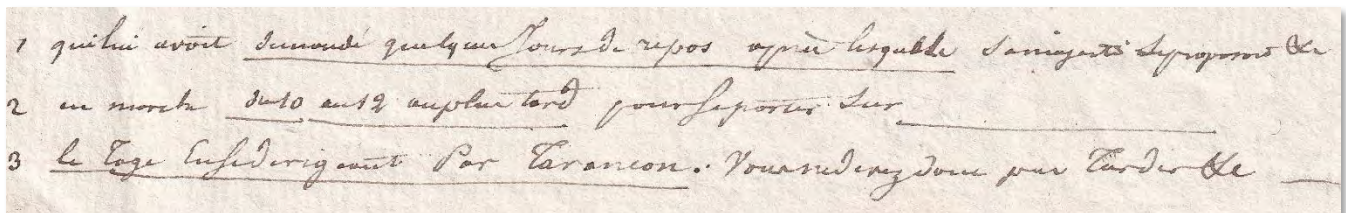 1 qui lui avoit demandé quelques Jours de repos après lesquels Sa majesté Se proposoit &e
2 en marche du 10 au 12 au plus tard pour se porter Sur
3 le Tage En se dirigeant Par Tarancon. Vous ne devez donc pas Tarder &e